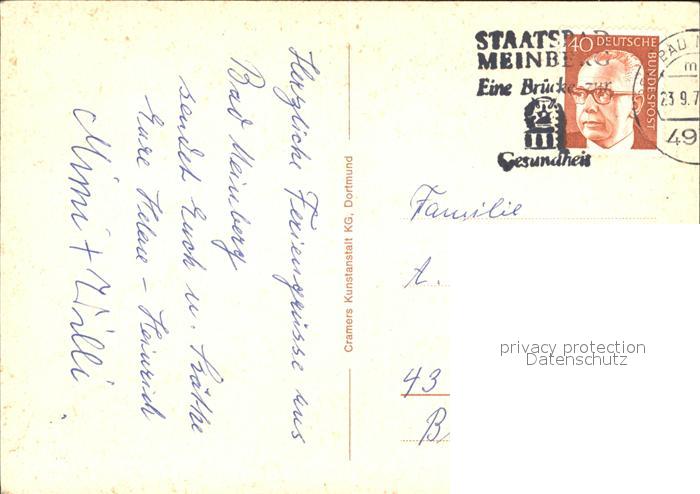 STAATSBAD
MEINBERG
Eine Brücke zur
Gesundheit
40 DEUTSCHE
BUNDESPOST
BAD M
m
23.9.7
49
Herzliche Feriengrüsse aus
Bad Meinberg
sendet Euch u.
Eure Helene - Heinrich
Mimi + Willi
Cramers Kunstanstalt KG, Dortmund
Familie
A.
43
B
privacy protection
Datenschutz